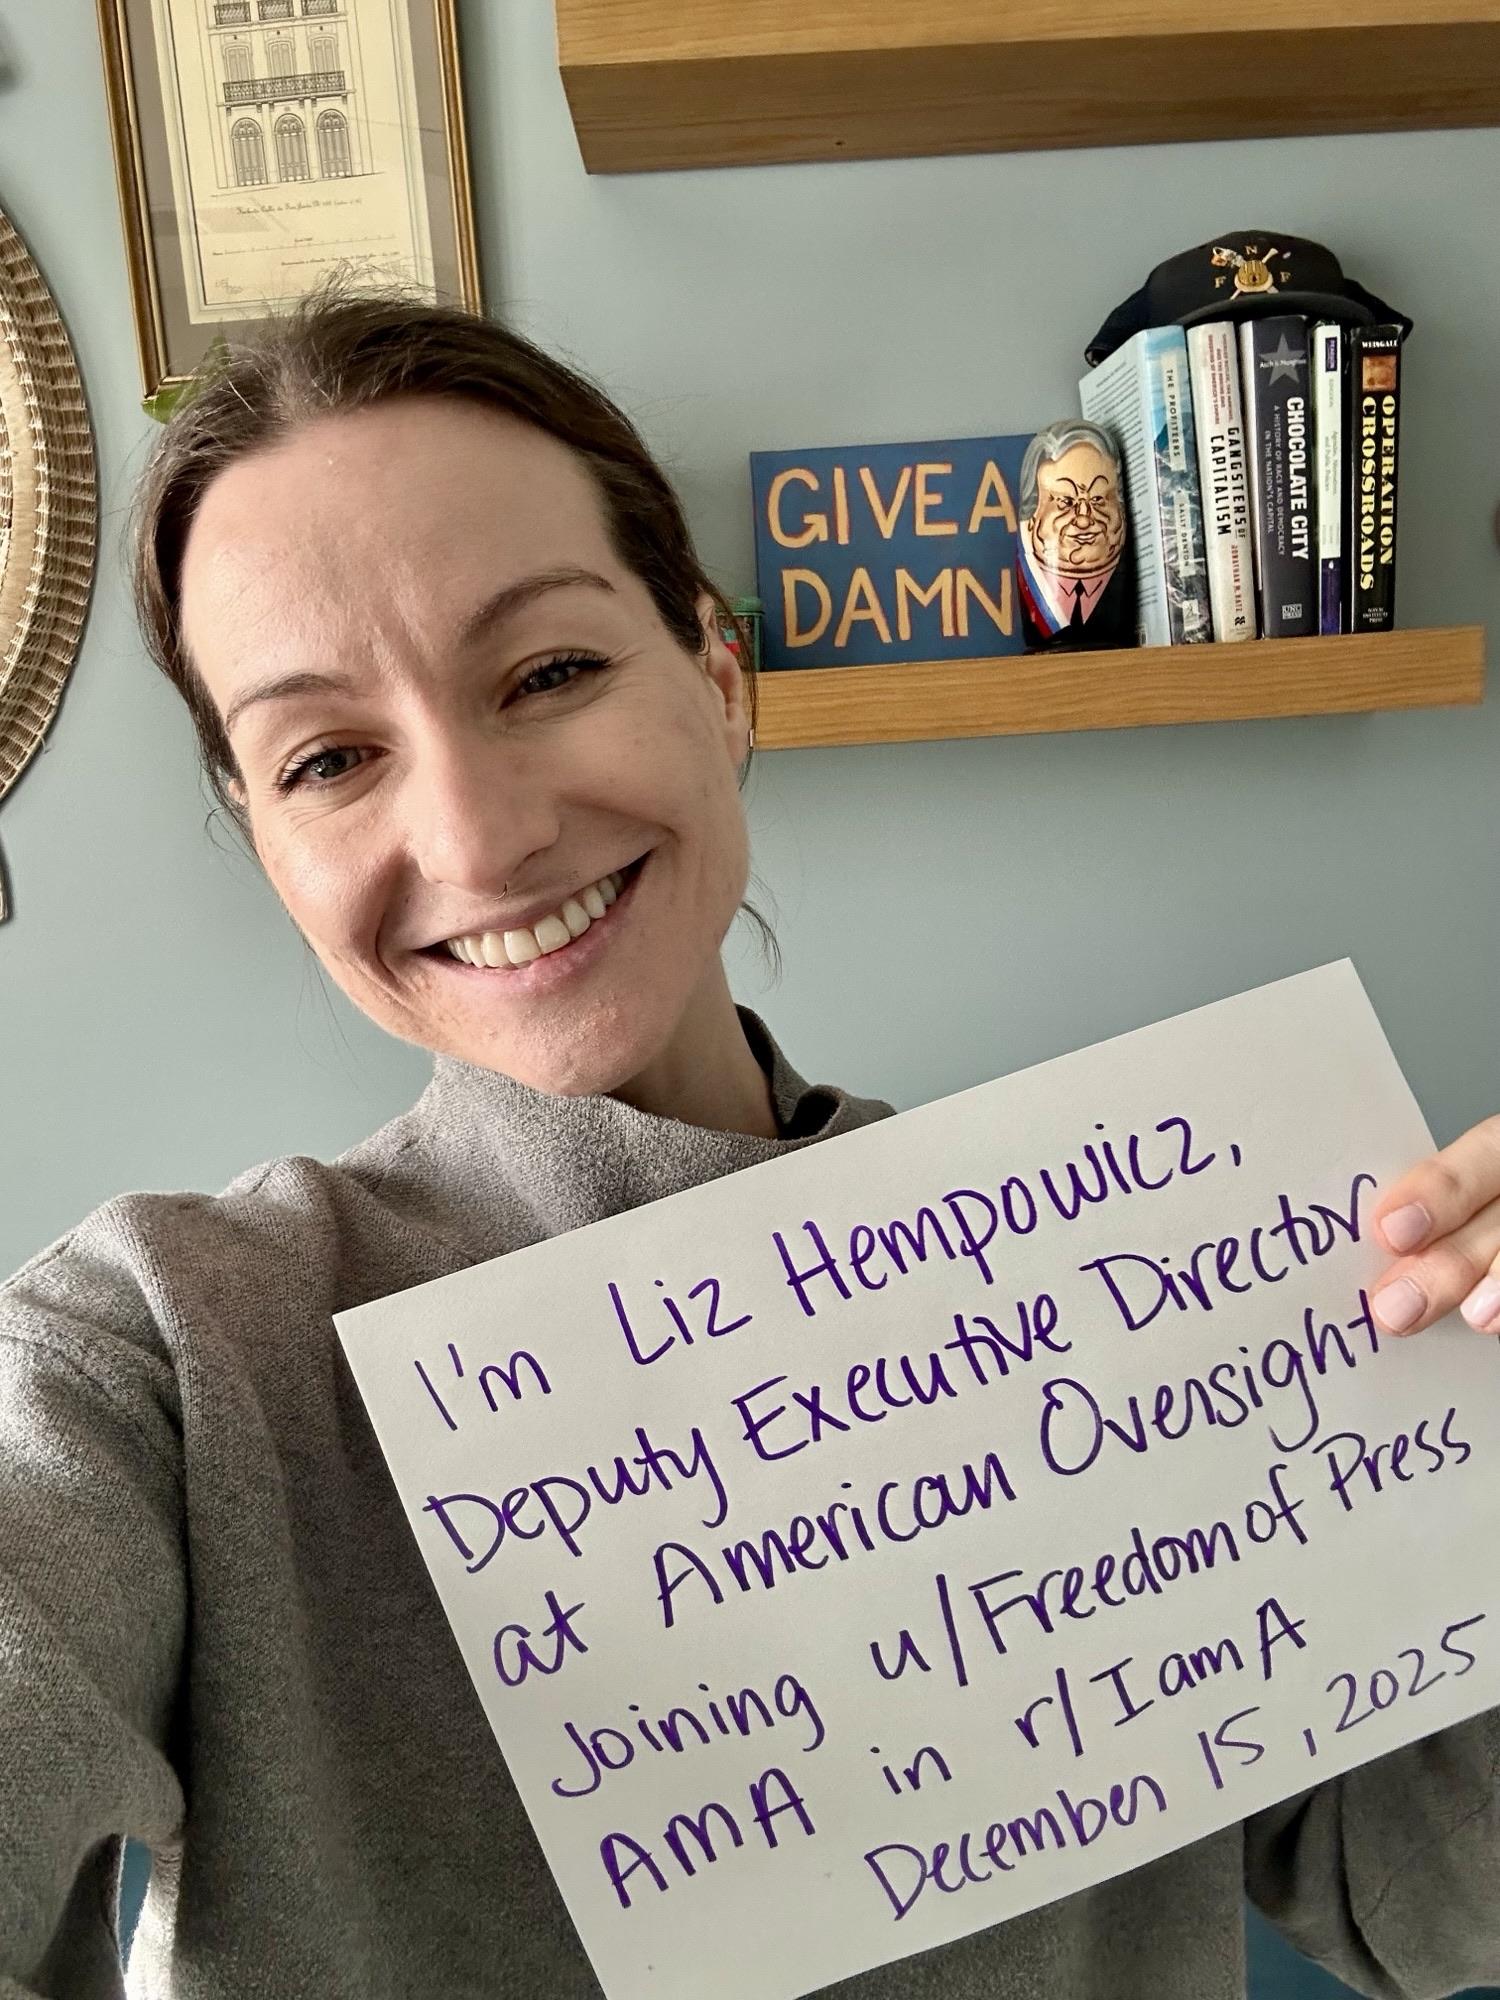 GIVE A
DAMN
F N F
THE PROFITEERS
SALLY DENTON
GANGSTERS OF CAPITALISM
JONATHAN M. KATZ
Asch & Musgrove
CHOCOLATE CITY
A HISTORY OF RACE AND DEMOCRACY
IN THE NATION'S CAPITAL
UNC
PRESS
PEARSON
WEISGALL
OPERATION
CROSSROADS
NAVAL
INSTITUTE
PRESS
I'm Liz Hempowicz,
Deputy Executive Director
at American Oversight
Joining u/FreedomofPress
AMA in r/IamA
December 15, 2025